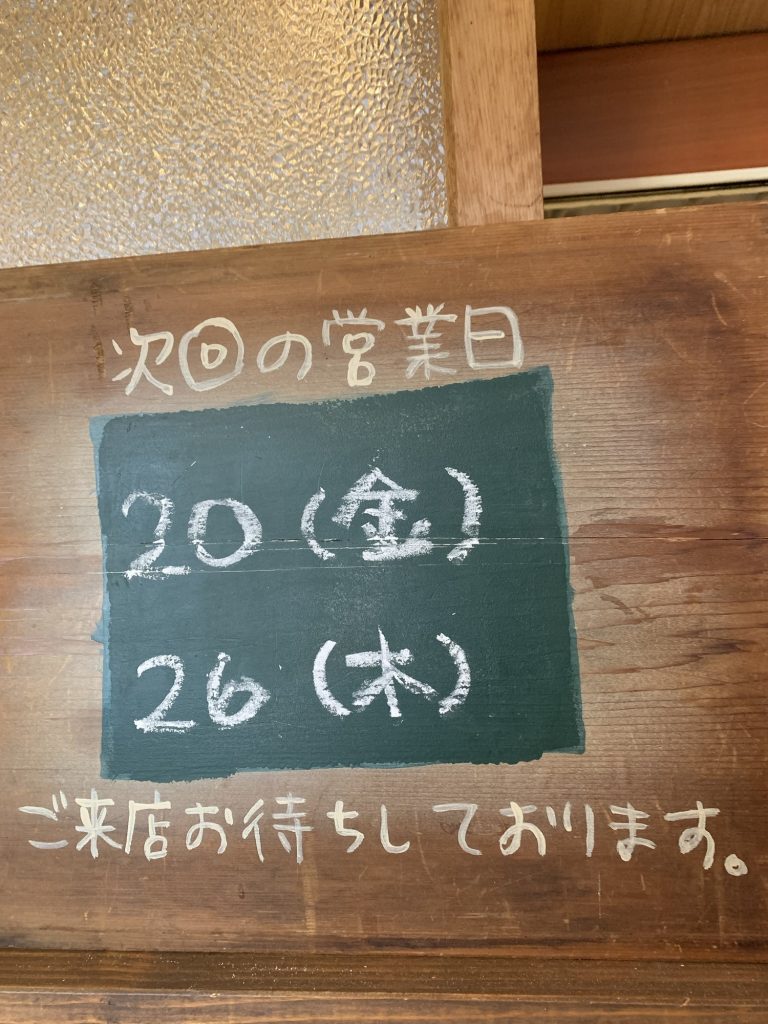 次回の営業日
20(金)
26(木)
ご来店お待ちしております。